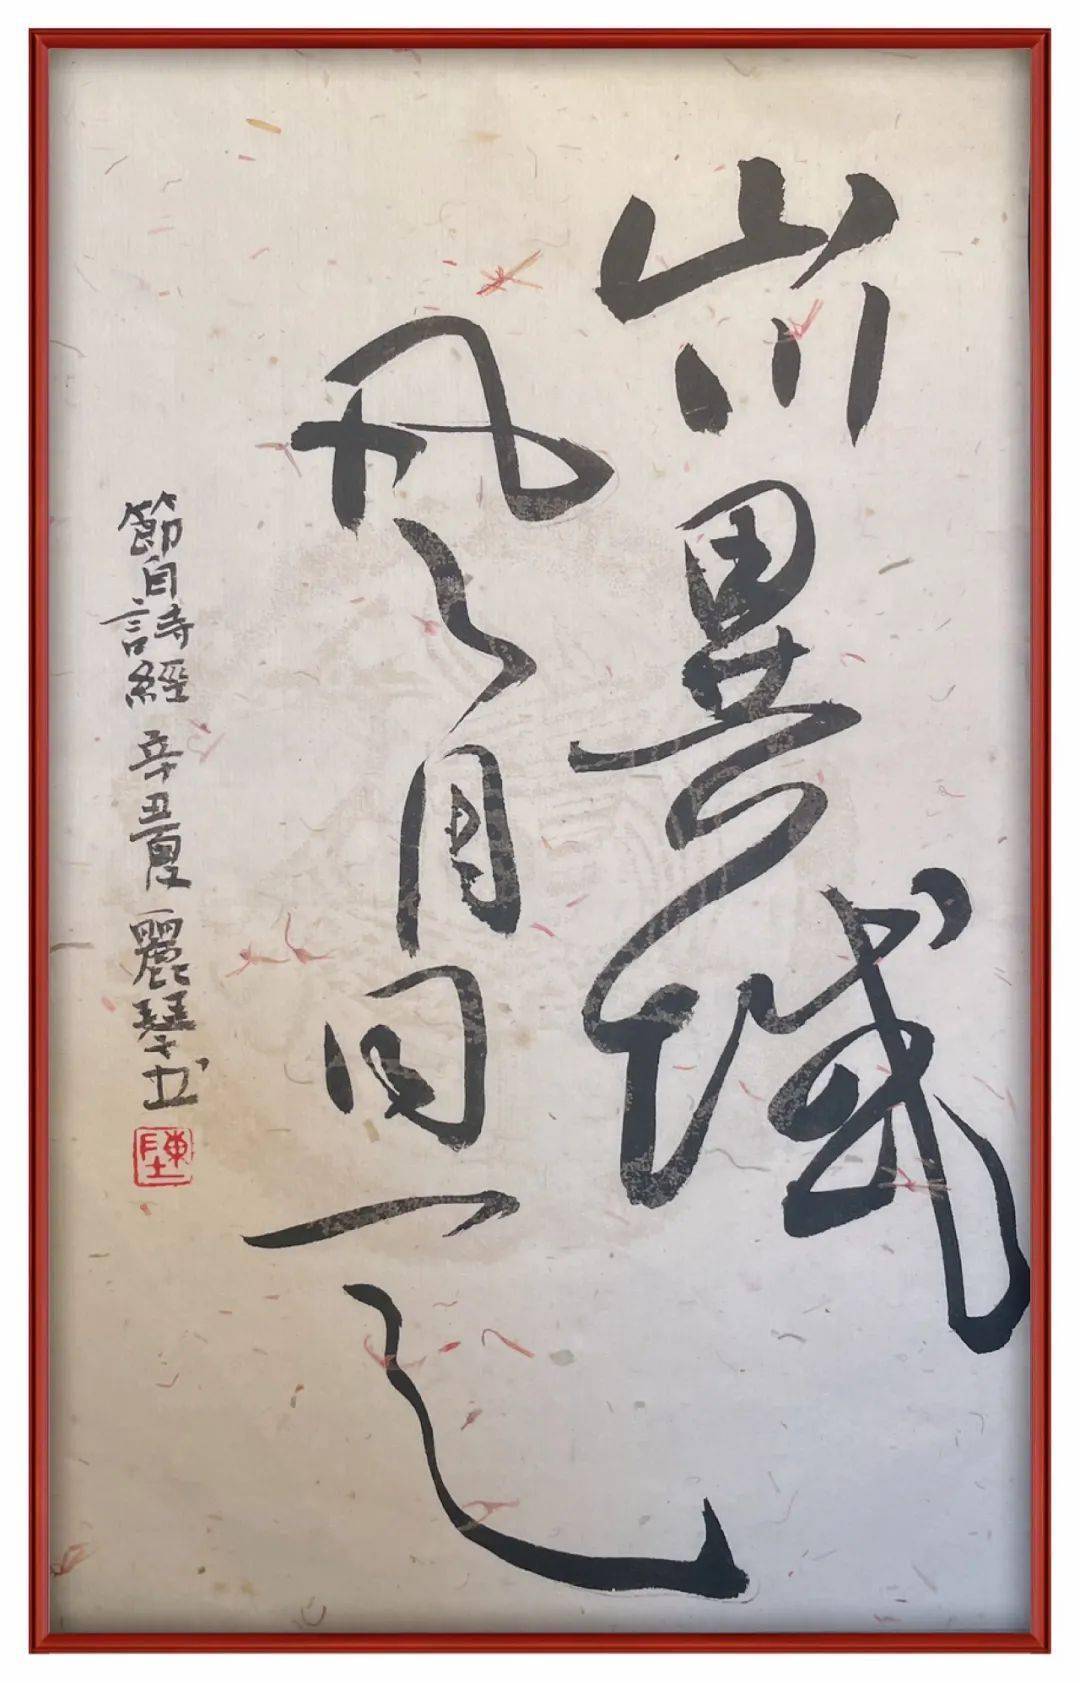 山川異域
風月同天
節自詩經 辛丑夏 麗琴书